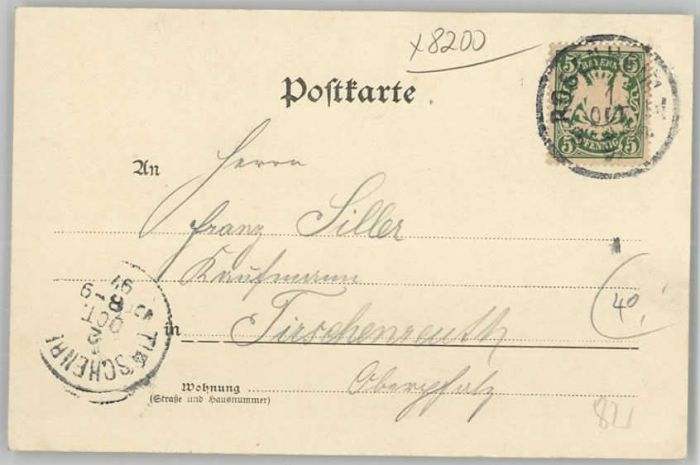 x8200
Postkarte
5 BAYERN 5
1
OCT
5 PFENNIG 5
An Herrn
Franz Siller
Kaufmann
in Tirschenreuth
Oberpfalz
Wohnung
(Straße und Hausnummer)
TIRSCHENR
OCT.
40,
821